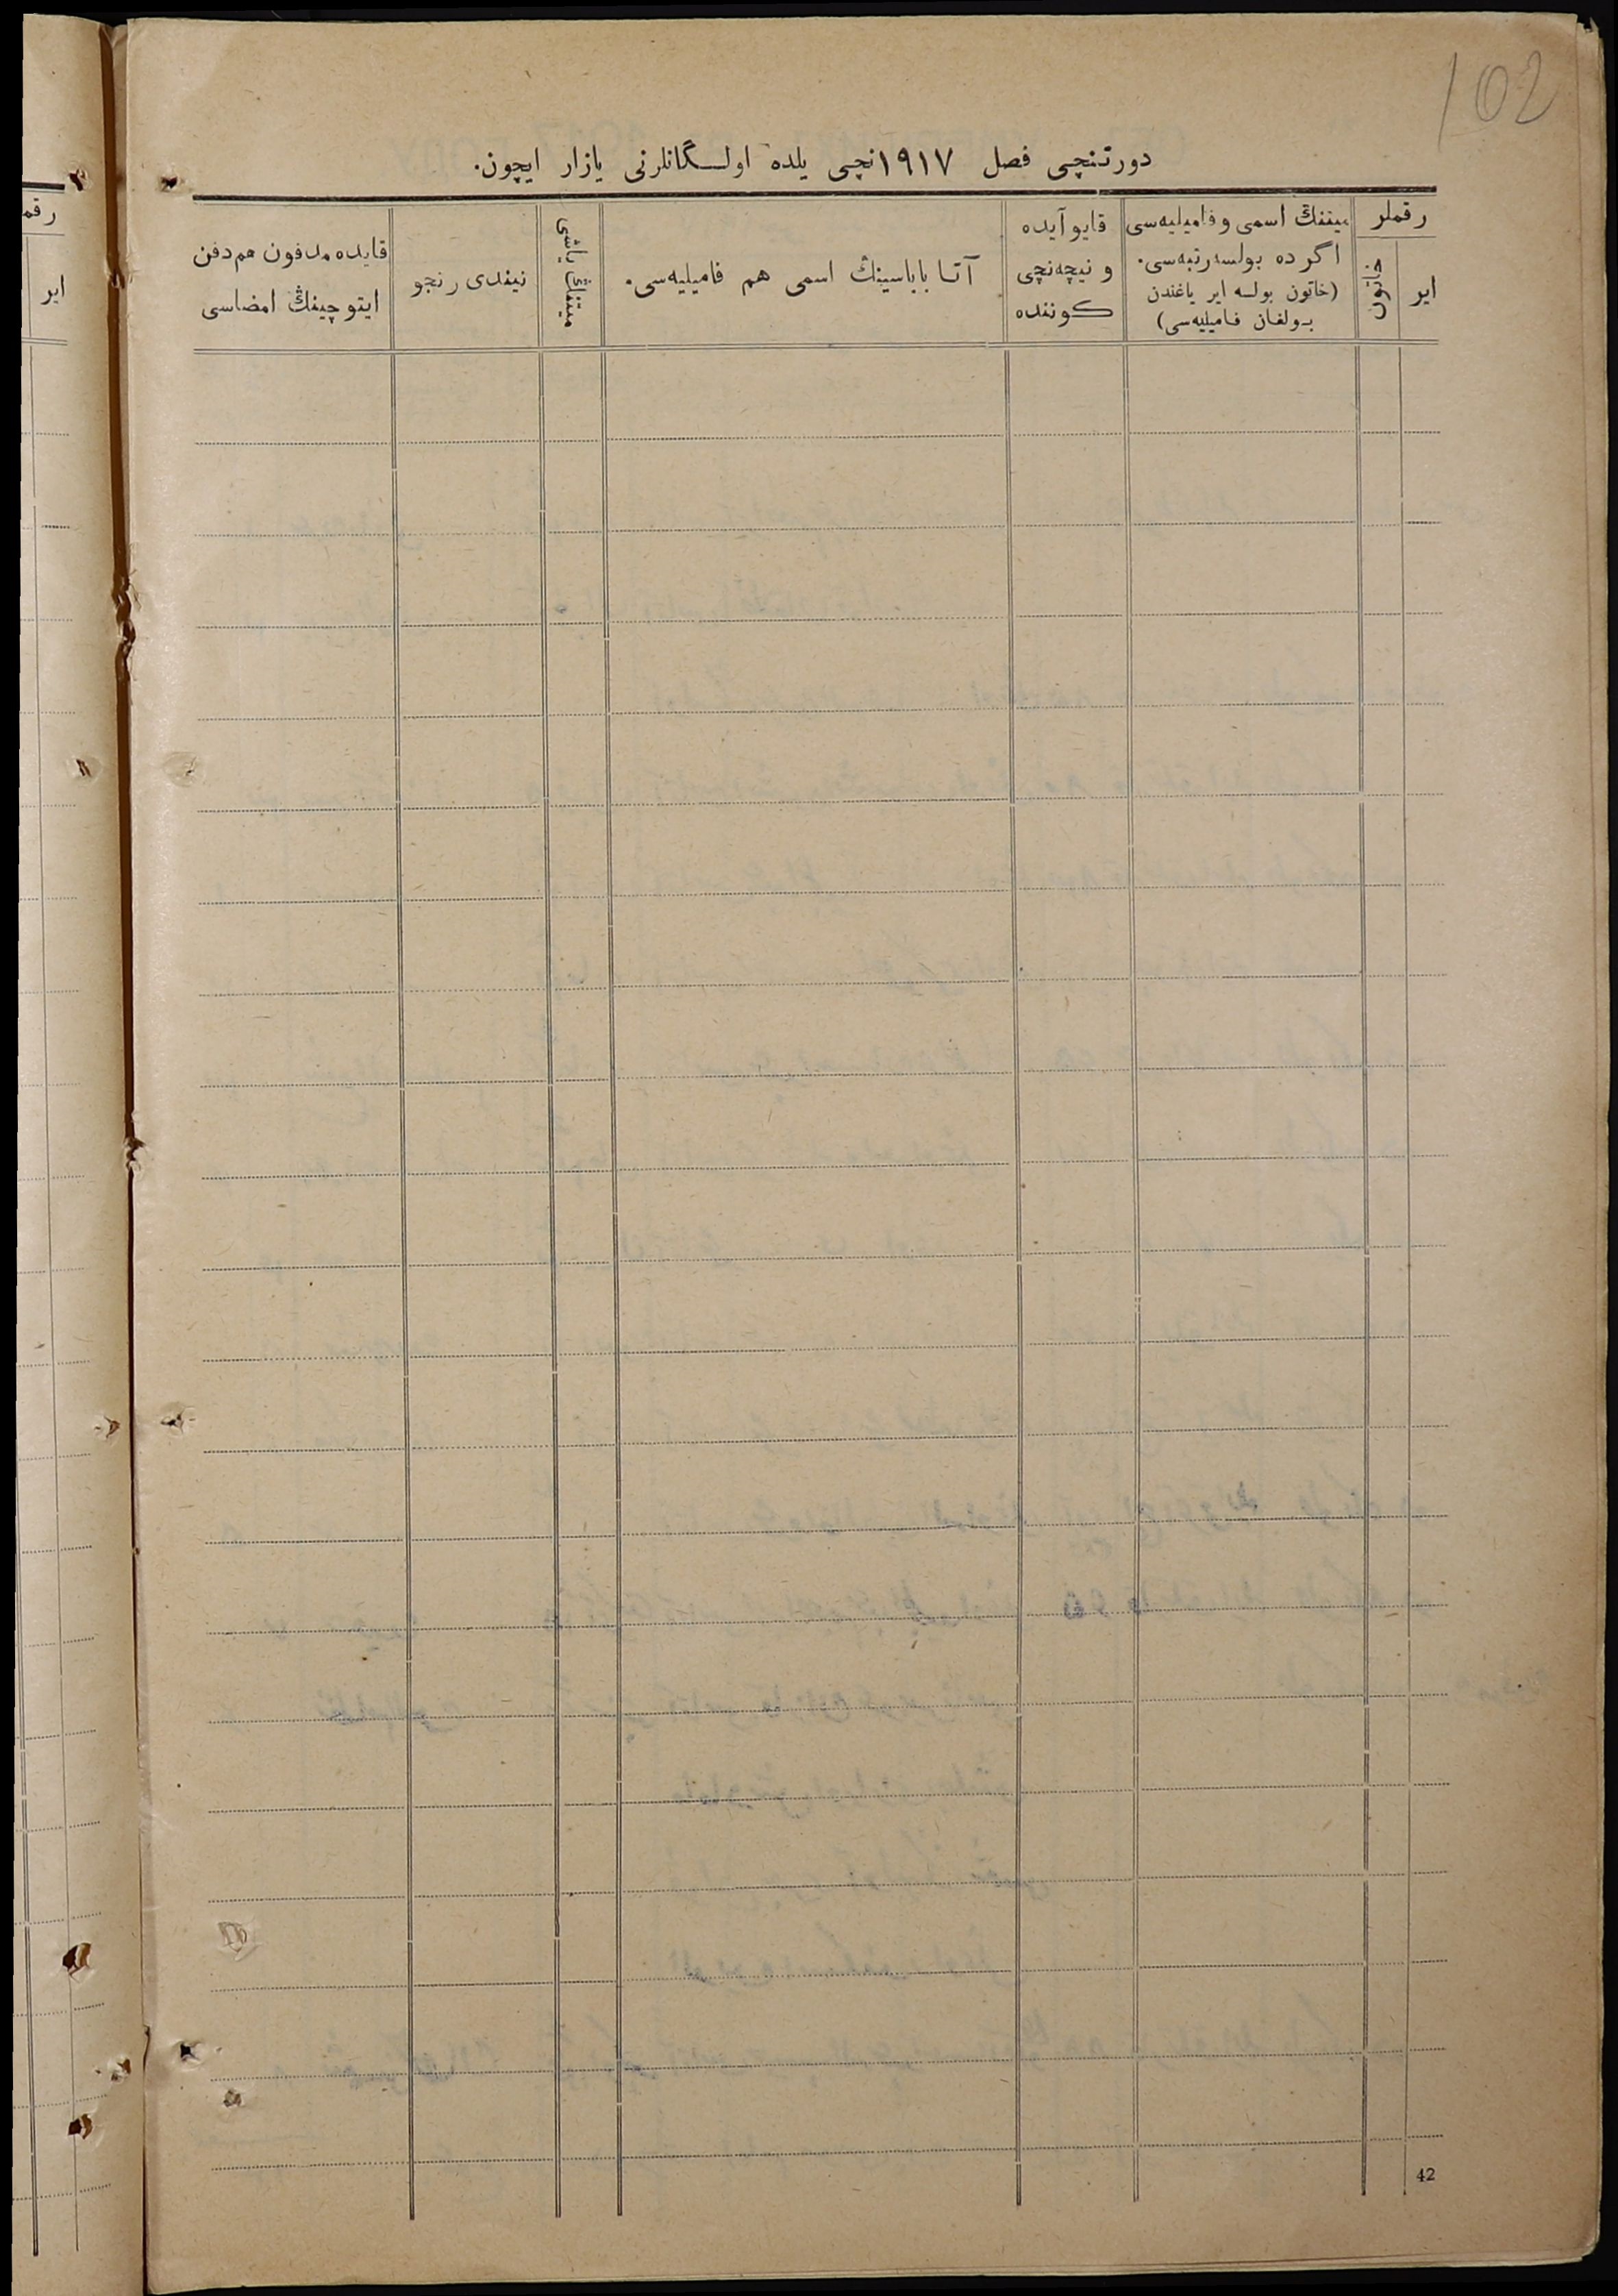 102
دورتنچی فصل ١٩١٧نچی یلده اولـگانلرنی یازار ایچون.
رقملر
ایر
خاتون
میتنڭ اسمی و فامیلیه‌سی
اگر ده بولسه رتبه‌سی.
(خاتون بولسه ایر یاغندن
بولغان فامیلیه‌سی)
قایو آیده
و نیچه‌نچی
کوننده
آتا باباسینڭ اسمی هم فامیلیه‌سی.
میتنڭ یاشی
نیندی رنجو
قایده مدفون هم دفن
ایتوچینڭ امضاسی
رقم
ایر
42